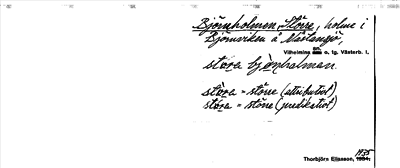 Björnholmen, Större, holme i
Björnviken å Västansjö,
Vilhelmina sn o. tg. Västerb. l.
stóra björnhalman.
stóra = större (attributivt)
stóra = större (predikativt)
1935
Thorbjörn Eliasson, 1934.